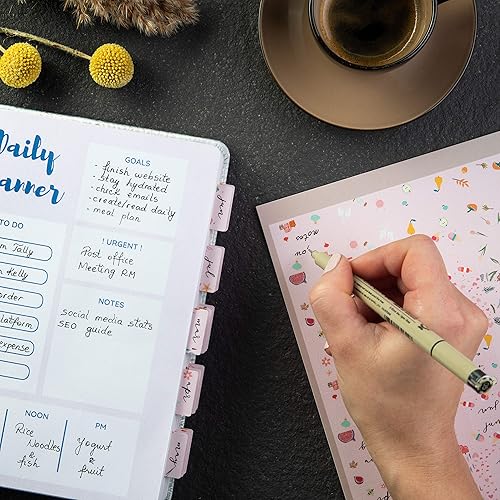 Daily
anner
GOALS
- finish website
- stay hydrated
- check emails
- create/read daily
- meal plan
! URGENT !
Post office
Meeting RM
TO DO
m Tally
n Kelly
order
latform
expense
NOTES
social media stats
SEO guide
NOON
Rice
Noodles
&
fish
PM
Yogurt
&
fruit
jan
feb
mar
apr
may
notes
no